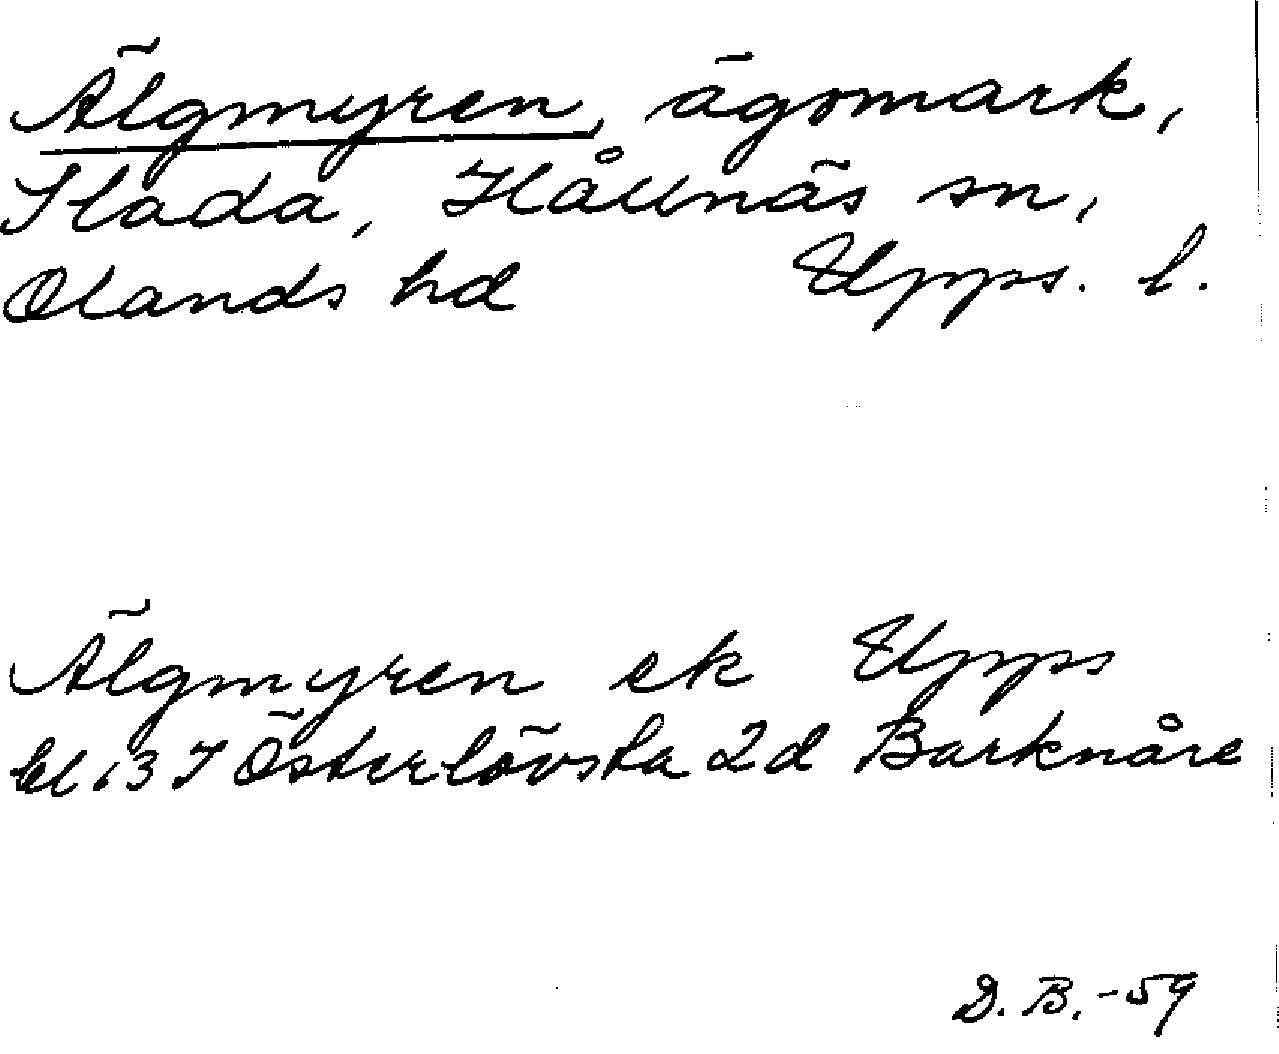 Älgmyren, ägomark,
Slada, Hållnäs sn,
Olands hd Upps. l.
Älgmyren ek Upps
bl 13 I Österlövsta 2d Barknåre
D. B. -59